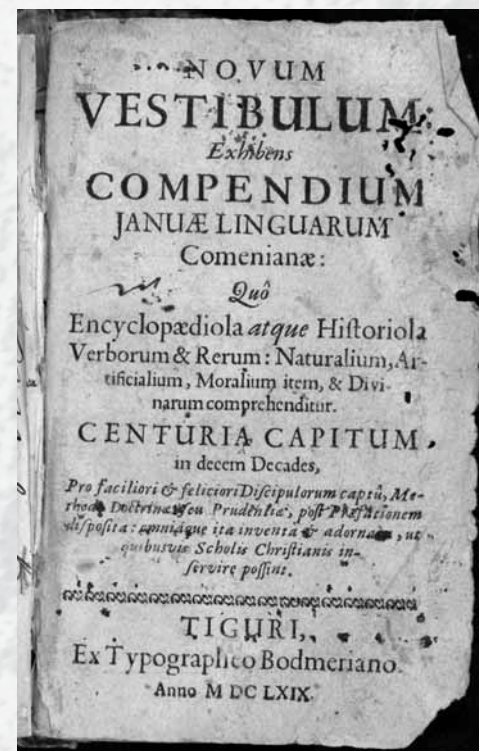 NOVUM
VESTIBULUM,
Exhibens
COMPENDIUM
JANUÆ LINGUARUM
Comenianæ:
Quô
Encyclopædiola atque Hiſtoriola
Verborum & Rerum: Naturalium, Ar-
tificialium, Moralium item, & Divi-
narum comprehenditur.
CENTURIA CAPITUM,
in decem Decades,
Pro faciliori & feliciori Diſcipulorum captû, Me-
thodô Doctrinæ ſeu Prudentiæ, poſt Præfationem
diſpoſita: omniaque ita inventa & adornata, ut
quibusvis Scholis Chriſtianis in-
ſervire poſſint.
TIGURI,
Ex Typographeo Bodmeriano.
Anno M DC LXIX.